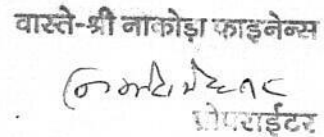 वास्ते-श्री नाकोड़ा फाइनेन्स
प्रोपराईटर